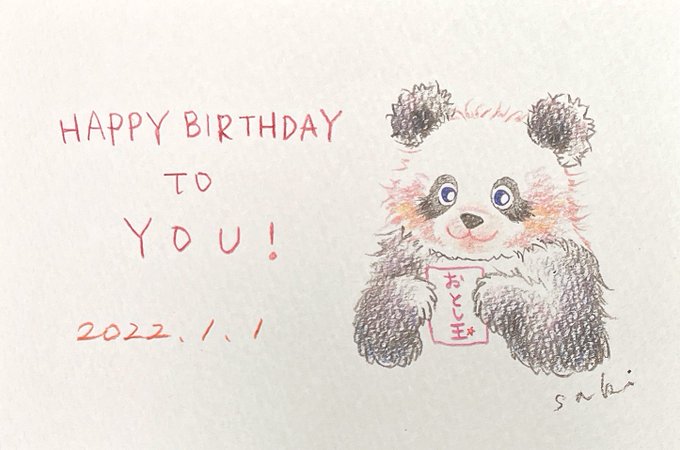 HAPPY BIRTHDAY
TO
YOU!
2022.1.1
おとし王★
saki